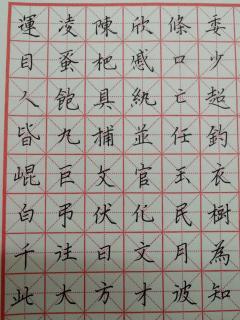 運凌陳欣條委
目蚤杷慼口少
人飽具紈亡超
皆九捕並任釣
崐巨攵官玉衣
白弔伏仡民樹
千注日文月為
此大方才波知